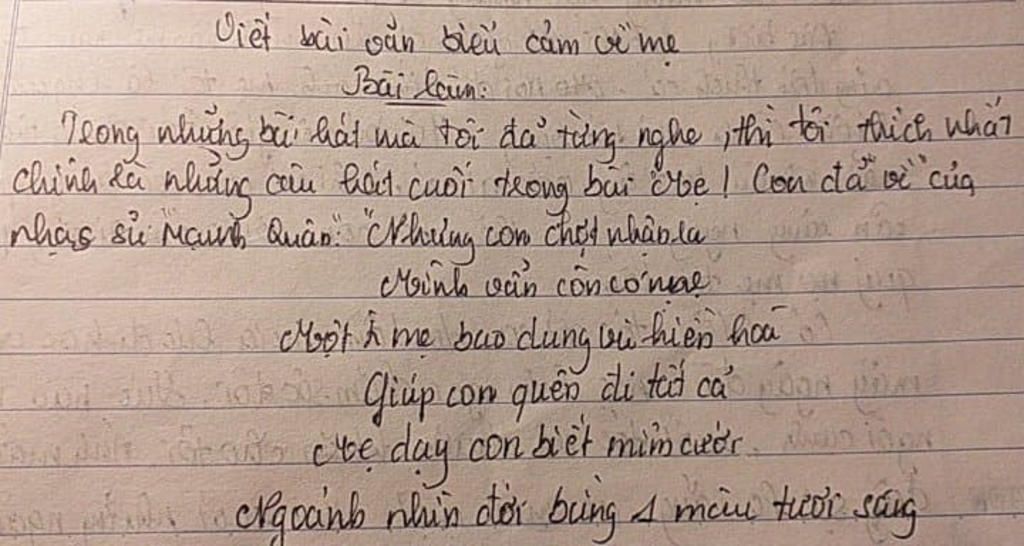 Viết bài văn biểu cảm về mẹ
Bài làm:
Trong những bài hát mà tôi đã từng nghe, thì tôi thích nhất
chính là những câu hát cuối trong bài "Mẹ! Con đã về" của
nhạc sĩ "Mạnh Quân": "Nhưng con chợt nhận ra
Mình vẫn còn có mẹ
Một mẹ bao dung và hiền hoà
Giúp con quên đi tất cả
Mẹ dạy con biết mỉm cười.
Ngoảnh nhìn đời bằng 1 màu tươi sáng